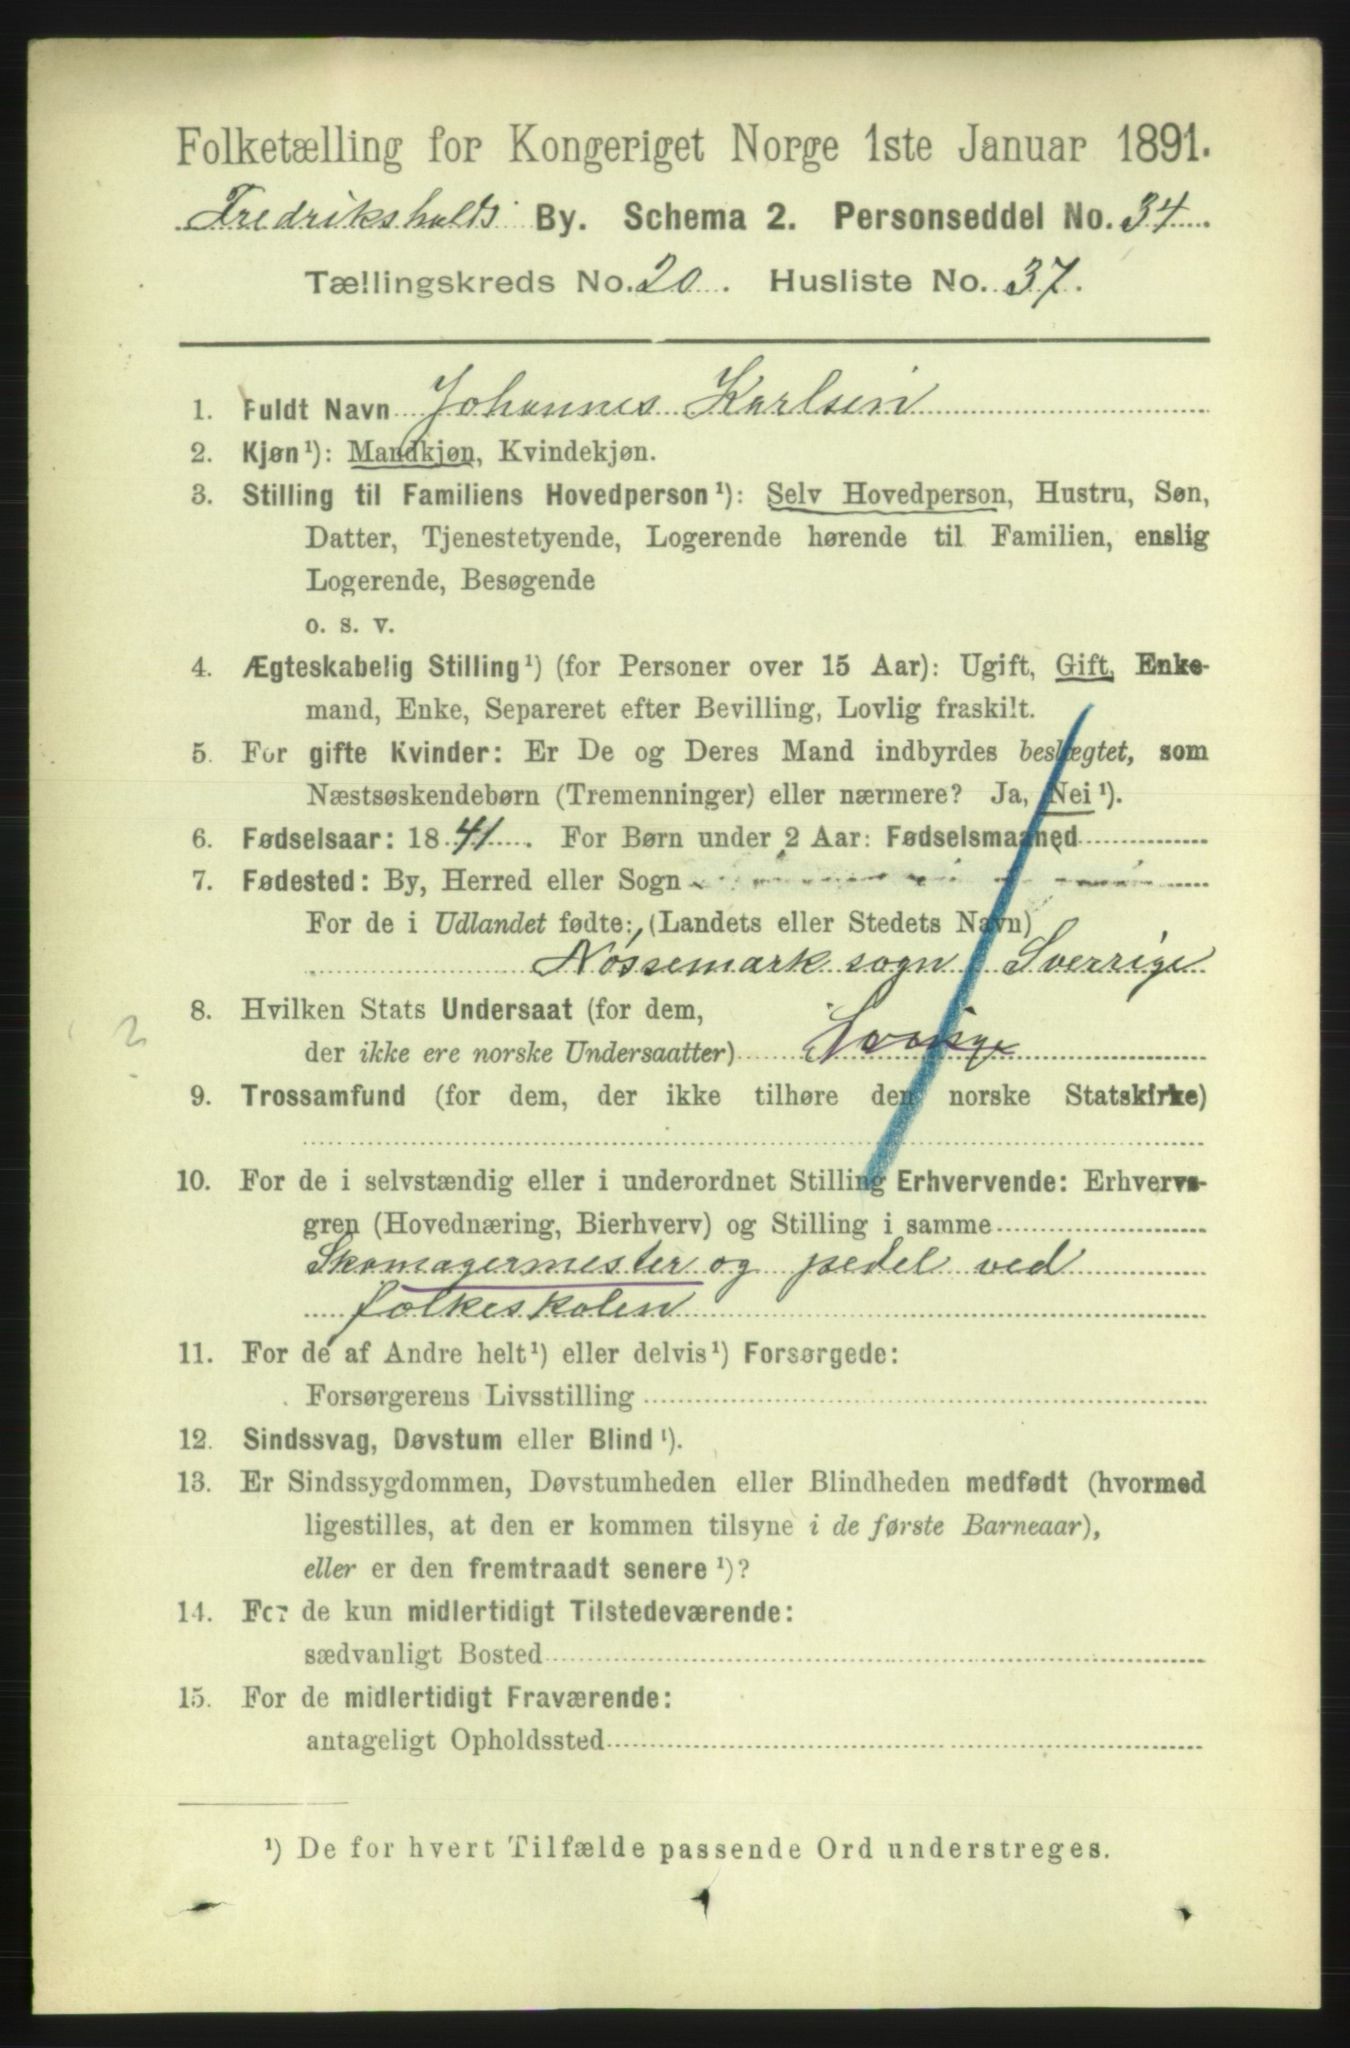 Folketælling for Kongeriget Norge 1ste Januar 1891.
Fredrikshalds By. Schema 2. Personseddel No. 34
Tællingskreds No. 20. Husliste No. 37.
1. Fuldt Navn Johannes Karlsen
2. Kjøn¹): Mandkjøn, Kvindekjøn.
3. Stilling til Familiens Hovedperson¹): Selv Hovedperson, Hustru, Søn,
Datter, Tjenestetyende, Logerende hørende til Familien, enslig
Logerende, Besøgende
o. s. v.
4. Ægteskabelig Stilling¹) (for Personer over 15 Aar): Ugift, Gift, Enke-
mand, Enke, Separeret efter Bevilling, Lovlig fraskilt.
5. For gifte Kvinder: Er De og Deres Mand indbyrdes beslægtet, som
Næstsøskendebørn (Tremenninger) eller nærmere? Ja, Nei¹).
6. Fødselsaar: 1841. For Børn under 2 Aar: Fødselsmaaned
7. Fødested: By, Herred eller Sogn
For de i Udlandet fødte: (Landets eller Stedets Navn)
Nössemark sogn Sverrige
8. Hvilken Stats Undersaat (for dem,
der ikke ere norske Undersaatter) Norige
9. Trossamfund (for dem, der ikke tilhøre den norske Statskirke)
10. For de i selvstændig eller i underordnet Stilling Erhvervende: Erhvervs-
gren (Hovednæring, Bierhverv) og Stilling i samme
Skomagermester og pedel ved
folkeskolen
11. For de af Andre helt¹) eller delvis¹) Forsørgede:
Forsørgerens Livsstilling
12. Sindssvag, Døvstum eller Blind¹).
13. Er Sindssygdommen, Døvstumheden eller Blindheden medfødt (hvormed
ligestilles, at den er kommen tilsyne i de første Barneaar),
eller er den fremtraadt senere¹)?
14. For de kun midlertidigt Tilstedeværende:
sædvanligt Bosted
15. For de midlertidigt Fraværende:
antageligt Opholdssted
¹) De for hvert Tilfælde passende Ord understreges.